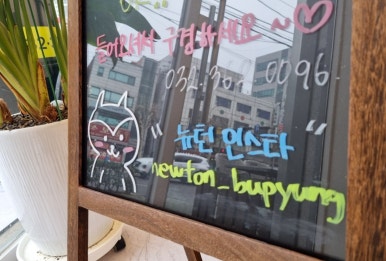 들어오셔서 구경하세요~♡
032.300.0096
"뉴턴 인스타"
newton_bupyung